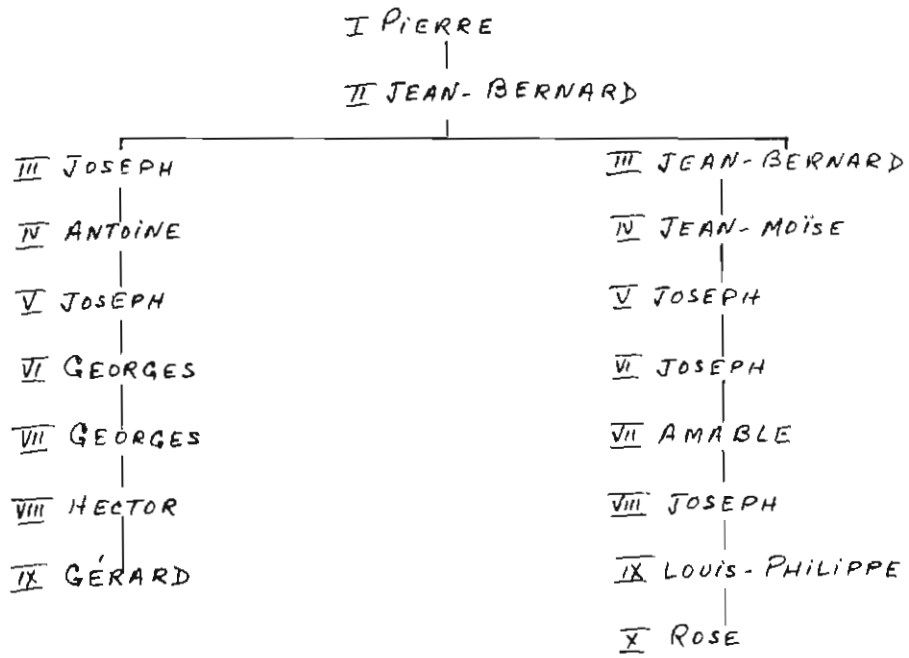 I PiERRE
II JEAN-BERNARD
III JOSEPH
IV ANTOiNE
V JOSEPH
VI GEORGES
VII GEORGES
VIII HECTOR
IX GÉRARD
III JEAN-BERNARD
IV JEAN-MOÏSE
V JOSEPH
VI JOSEPH
VII AMABLE
VIII JOSEPH
IX LOUiS-PHiLiPPE
X ROSE